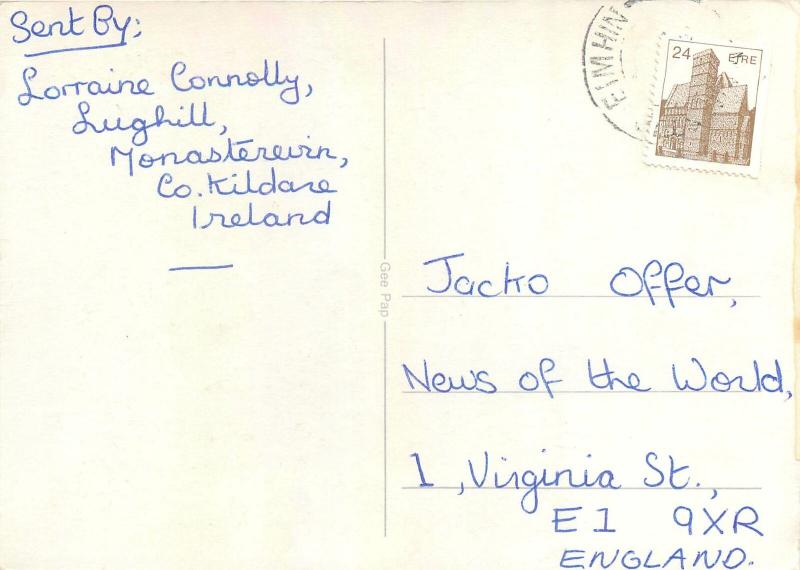 Sent By:
Lorraine Connolly,
Lughill,
Monasterevin,
Co. Kildare
Ireland
EIMHIN
24 EIRE
Gee Pap
Jacko Offer,
News of the World,
1, Virginia St.,
E1 9XR
ENGLAND.